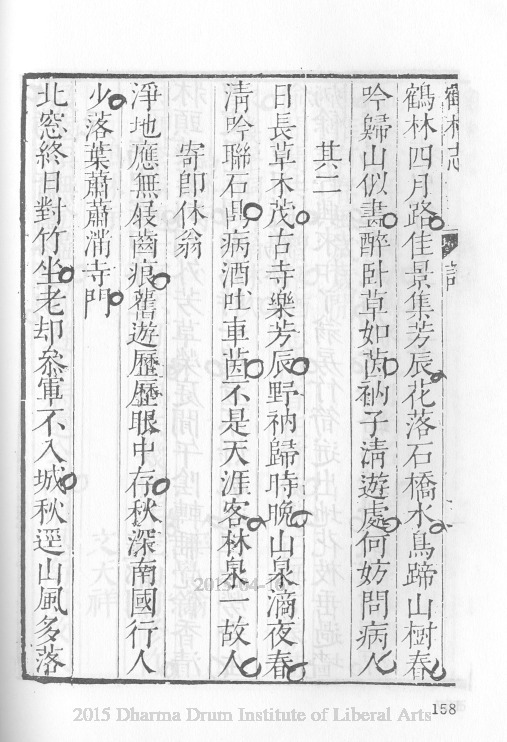 鶴林志 詩
鶴林四月路佳景集芳辰花落石橋水鳥蹄山樹春
吟歸山似畫醉卧草如茵衲子淸遊處何妨問病人
其二
日長草木茂古寺樂芳辰野衲歸時晚山泉滴夜春
淸吟聯石鼎病酒吐車茵不是天涯客林泉一故人
寄卽休翁
淨地應無屐齒痕舊遊歷歷眼中存秋深南國行人
少落葉蕭蕭滿寺門
北窓終日對竹坐老却叅軍不入城秋逕山風多落
158
2015 Dharma Drum Institute of Liberal Arts